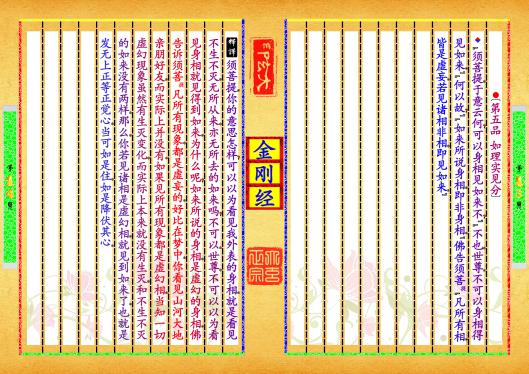 ●(第五品 如理实见分)
◆须菩提于意云何可以身相见如来不不也世尊不可以身相得
见如来何以故如来所说身相即非身相佛告须菩提凡所有相
皆是虚妄若见诸相非相即见如来
金刚经
释译 须菩提你的意思怎样可以以为看见我外表的身相就是看见
不生不灭无所从来亦无所去的如来吗不可以世尊不可以以为看
见身相就见得到如来为什么呢如来所说的身相是虚幻的身相佛
告诉须菩提凡所有现象都是虚妄的好比在梦中你看见山河大地
亲朋好友而实际上并没有如果见所有现象都是虚幻相当知一切
虚幻现象虽然有生灭变化而实际上本来就没有生灭和不生不灭
的如来没有两样那么你若见诸相是虚幻相就见到如来了也就是
发无上正等正觉心当可如是住如是降伏其心